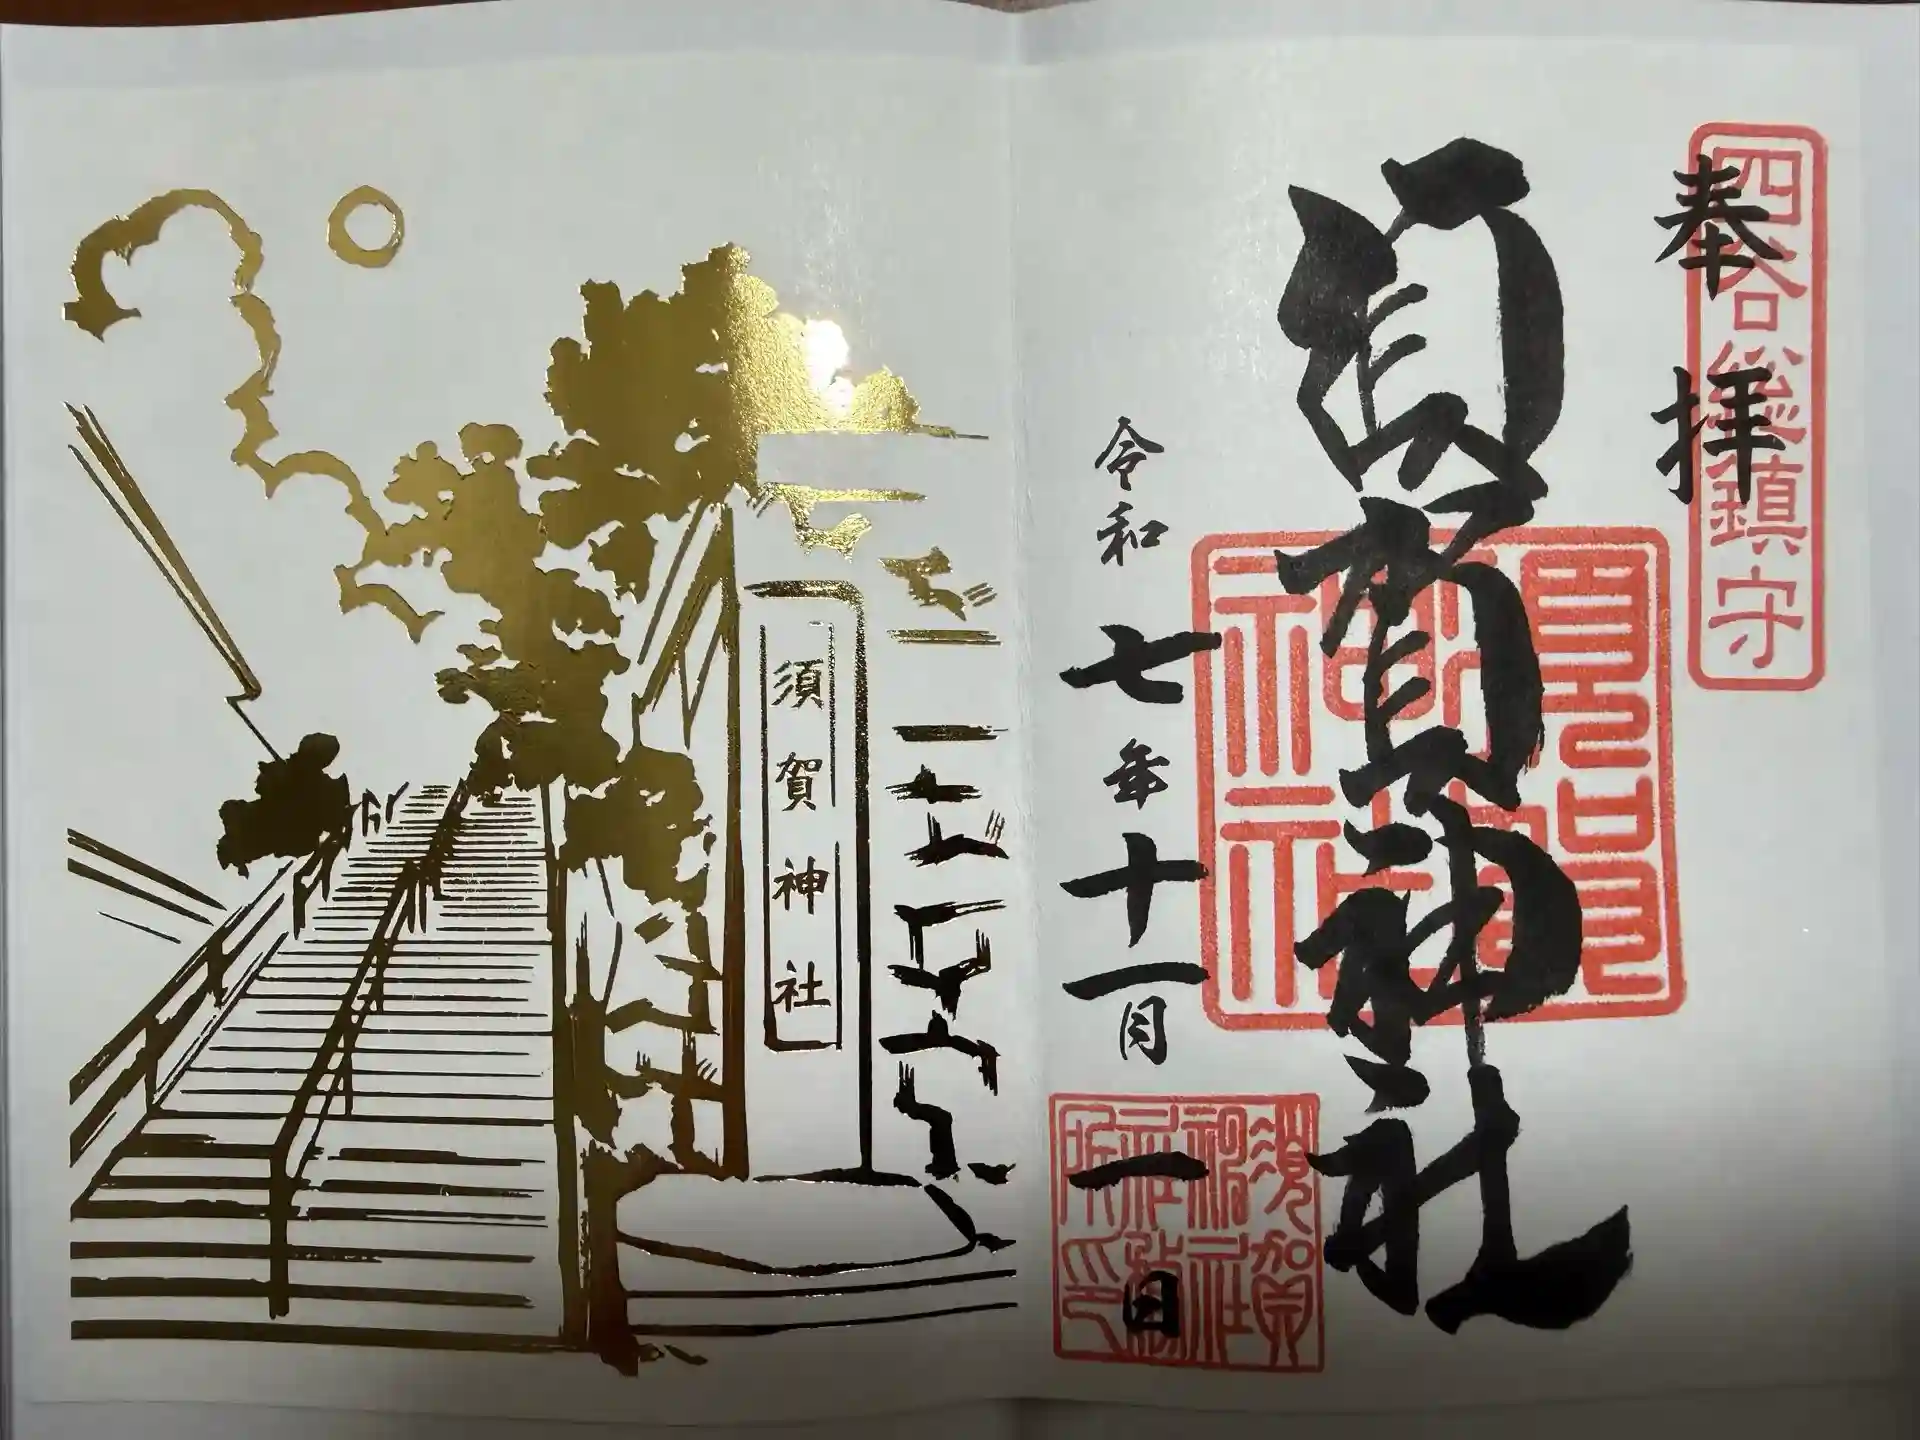 四谷總鎮守
奉拝
須賀神社
須賀神社
令和七年十一月一日
須賀神社社務所印
須賀神社